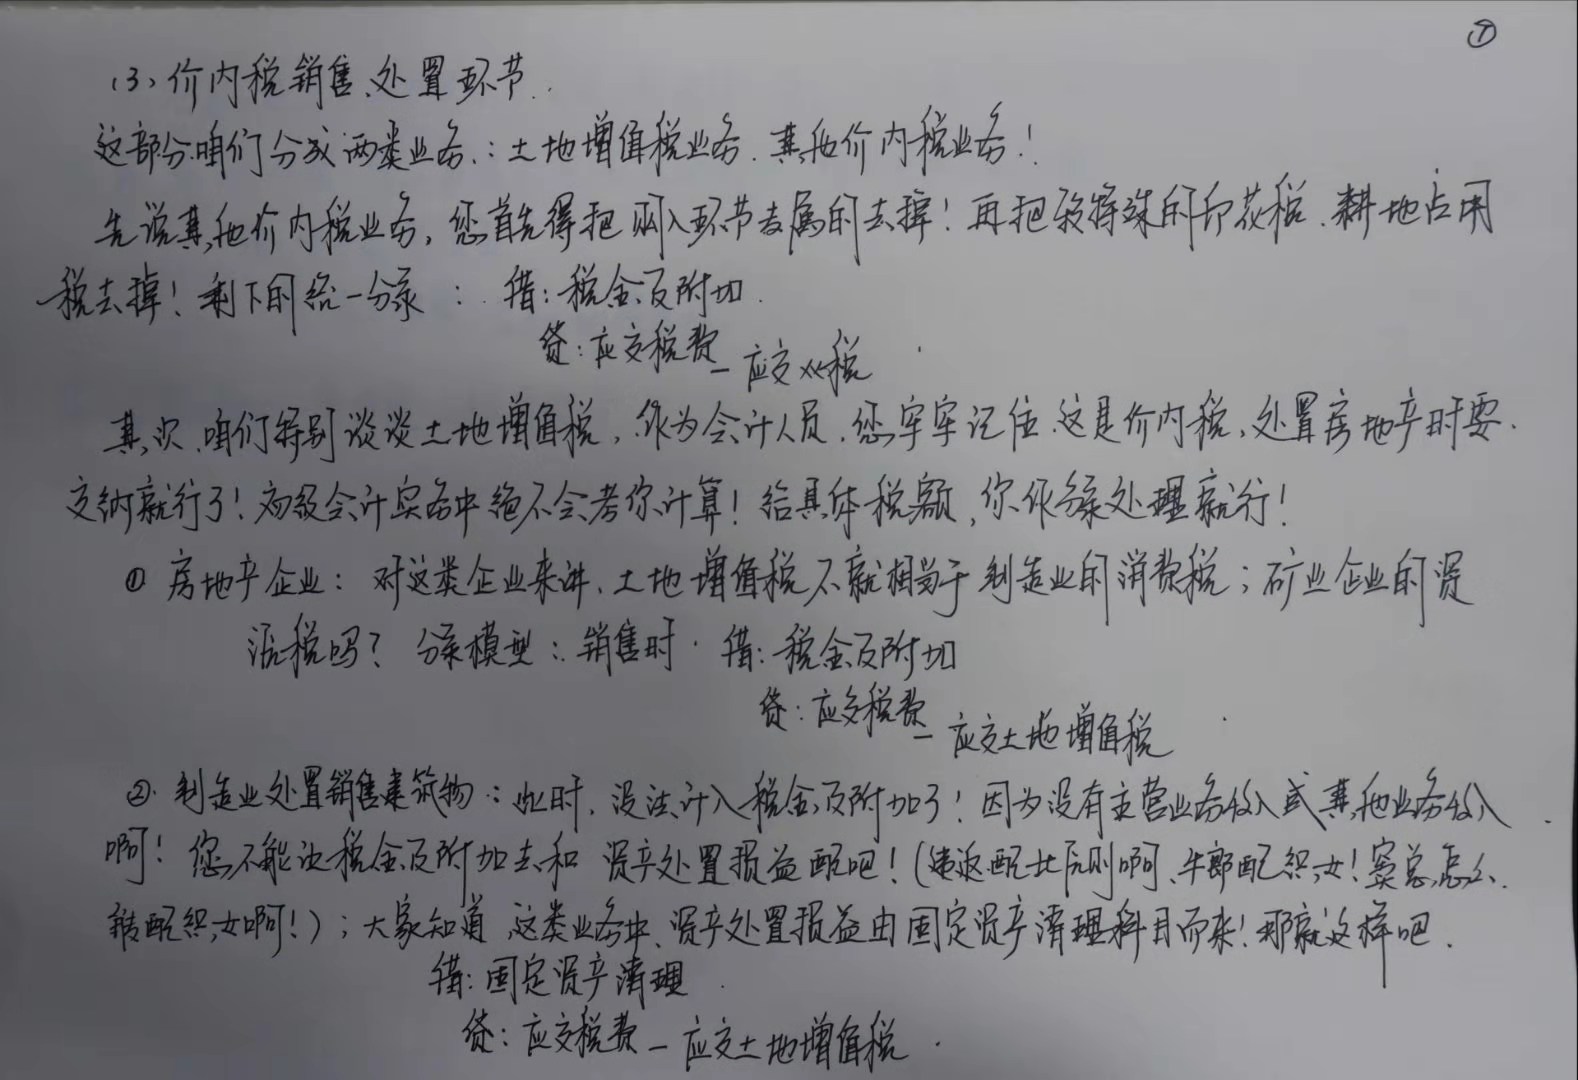 ⑦
(3)、价内税销售、处置环节.
这部分咱们分成两类业务:土地增值税业务、其他价内税业务!
先说其他价内税业务,您首先得把购入环节专属的去掉!再把较特殊的印花税、耕地占用
税去掉!剩下的统一分录: 借:税金及附加
贷:应交税费—应交××税
其次,咱们特别谈谈土地增值税,作为会计人员,您牢牢记住,这是价内税,处置房地产时要
交纳就行了!初级会计实务中绝不会考你计算!给具体税额,你作分录处理就行!
① 房地产企业:对这类企业来讲,土地增值税不就相当于制造业的消费税;矿业企业的资
源税吗?分录模型:销售时 借:税金及附加
贷:应交税费—应交土地增值税
②、制造业处置销售建筑物:此时,没法计入税金及附加了!因为没有主营业务收入或其他业务收入
啊!您不能让税金及附加去和资产处置损益配吧!(违返配比原则啊、牛郎配织女!窦总怎么
能配织女啊!);大家知道,这类业务中、资产处置损益由固定资产清理科目而来!那就这样吧.
借:固定资产清理
贷:应交税费—应交土地增值税